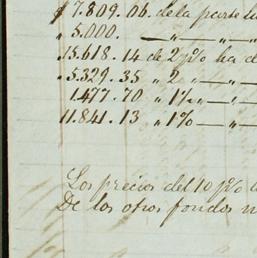 $ 7.809.06. de la parte
" 5.000. " — " — "
" 15.618.14 de 2 p% ha d
" 5.329.35 " 2 " — "
1.477.70 " 1% " — "
11.841.13 " 1% — "
Los precios del 10 p%
De los otros fondos n